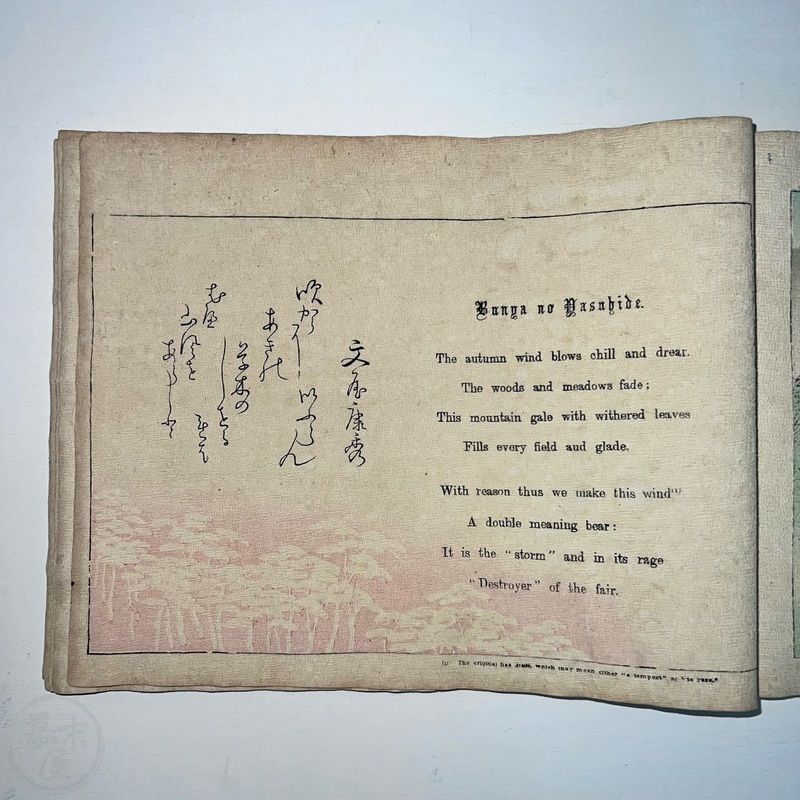 文屋康秀
吹からに
あきの
草木の
しをる
れは
山風を
あらしと
いふらん
Bunya no Yasuhide.
The autumn wind blows chill and drear.
The woods and meadows fade;
This mountain gale with withered leaves
Fills every field aud glade.
With reason thus we make this wind(1)
A double meaning bear:
It is the "storm" and in its rage
"Destroyer" of the fair.
(1) The original has arashi, which may mean either "a tempest" or "to raze."